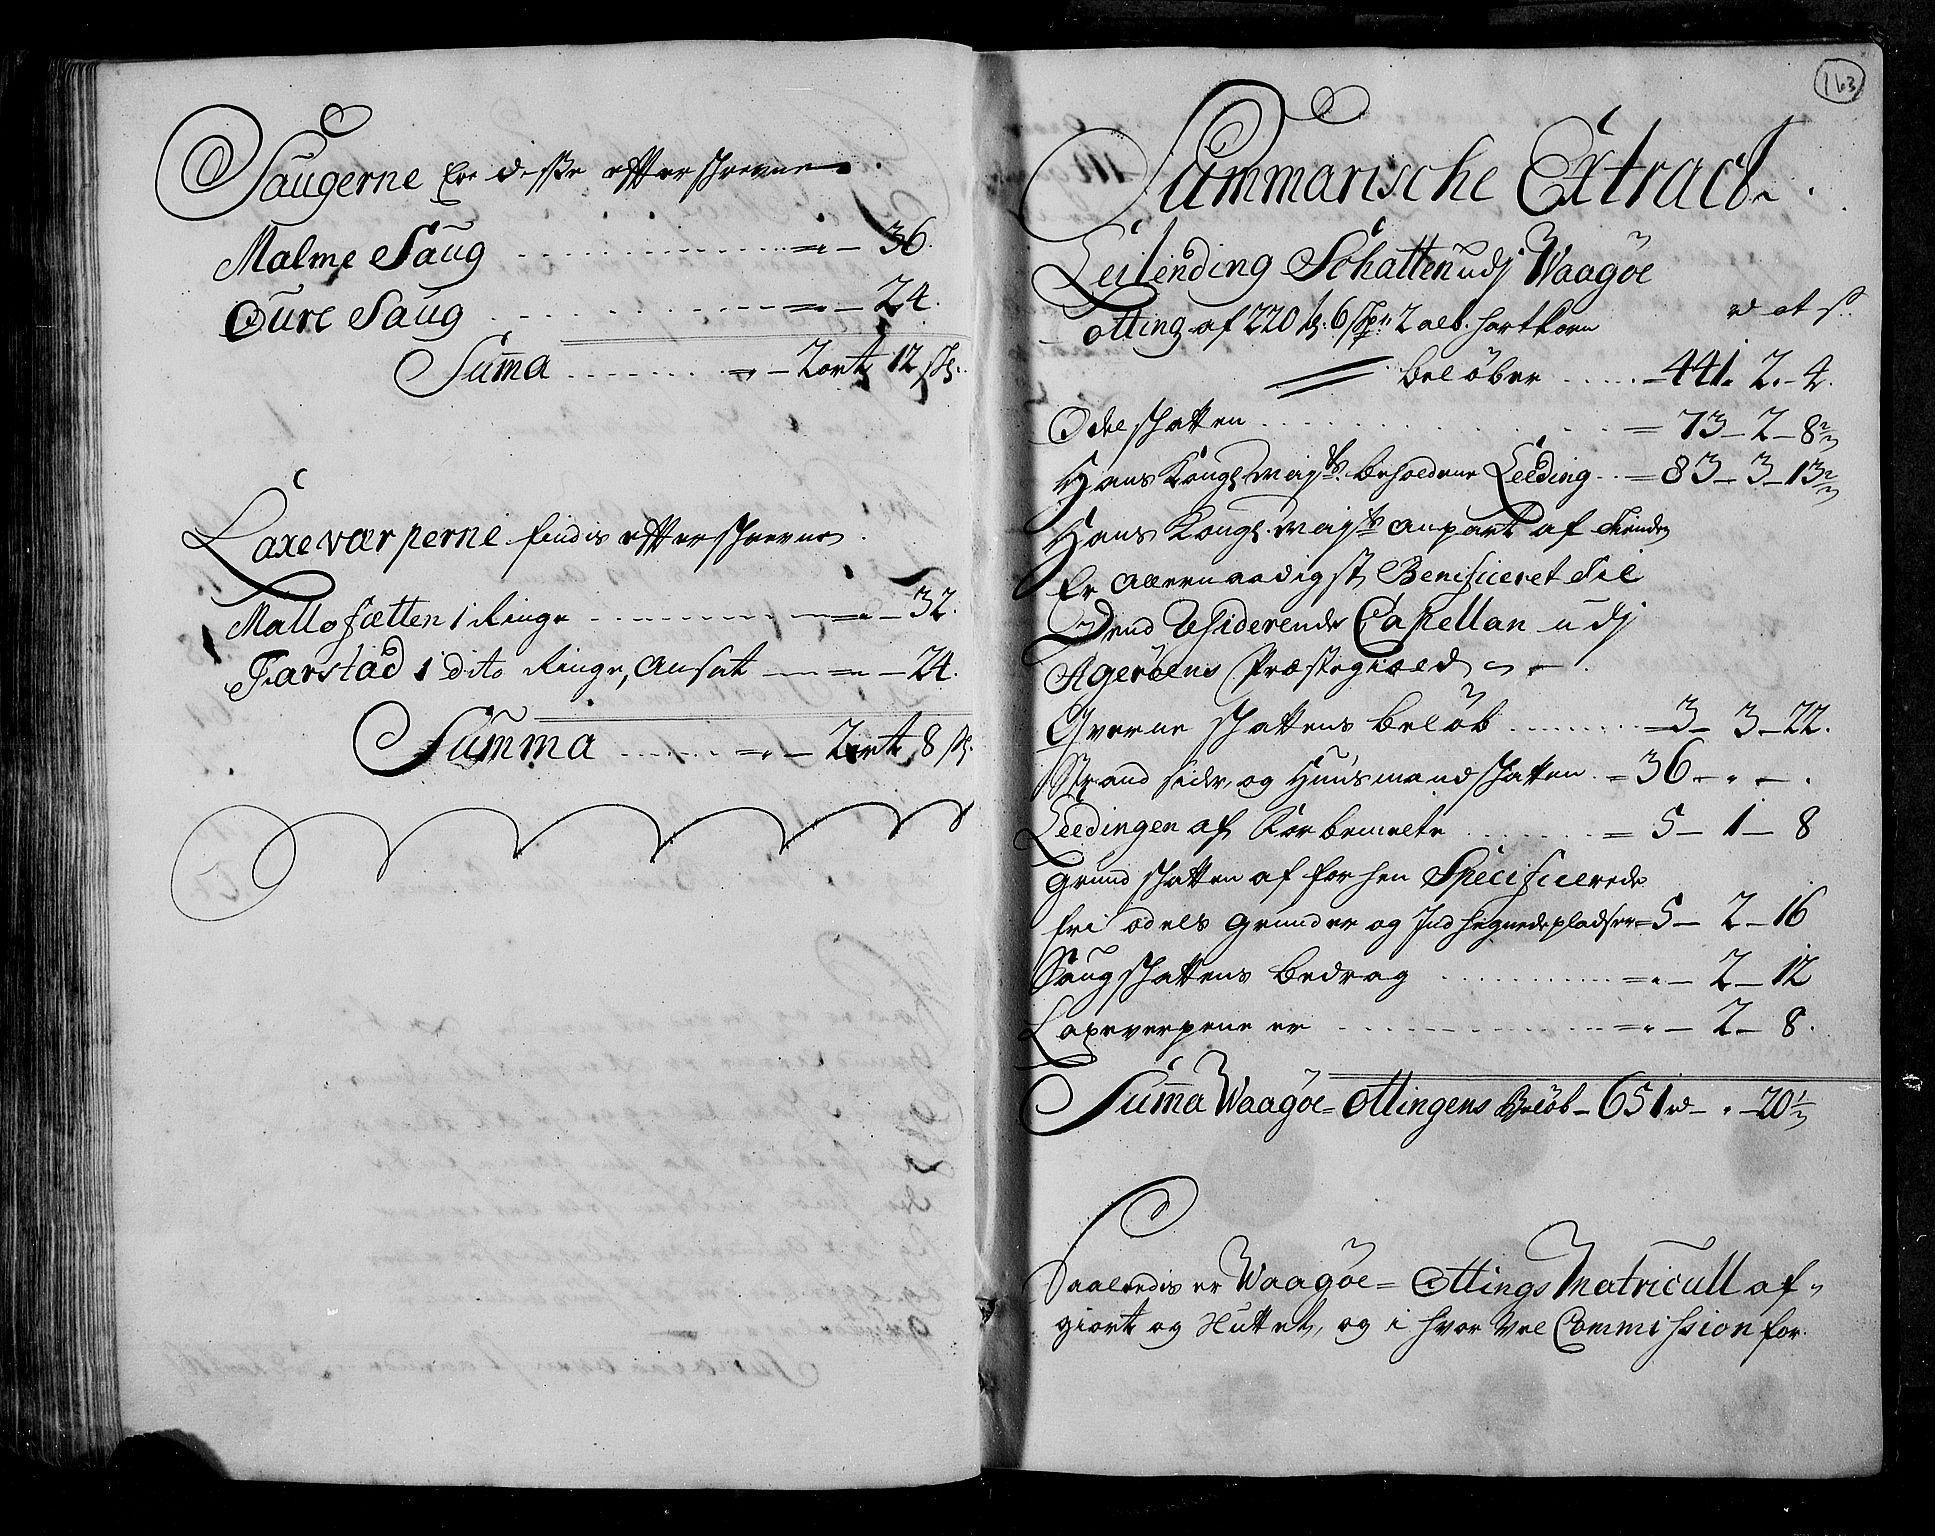 Saugerne Ere disse efterschrevne.
Malme Saug = „ — 36.
Oure Saug = „ — 24.
Suma = „ — 2 ort 12 sk:
Laxeværperne findis efterschrevne.
Mallosætten 1 Ringe = „ — 32.
Farstad 1 dito Ringe, Ansat = „ — 24.
Summa = „ — 2 ort, 8 sk.
163
Summarische Extract.
Leilending Schatten udj Waagøe
otting af 220 W: 6 sp: 2 alb. hartkorn
rd ort s.
beløber — 441. 2. — 4.
Odelschatten = 73 — 2 — 8 2/3
Hans Kongl. Mayts. beholdene Leeding = 83 — 3 — 13 2/3
Hans Kongl. Mayts anpart af tienden
Er allernaadigst Benificeret til
Dend Residerende Capellan udj
Agerøens Præstegield
Qverne schattens beløb = 3 — 3 — 22.
Strand sider og Huusmand schatten = 36 — „ — .
Leedingen af Forbemelte = 5 — 1 — 8
Grund schatten af forhen Specificerede
fri odels grunder og Indhegnede pladser = 5 — 2 — 16
Saug schattens bedrag = „ — 2 — 12
Laxeverpene er = „ — 2 — 8.
Suma Waagøe = ottingens Beløb — 651 rd — „ — 20 1/3
Saaledis er Waagøe = Ottings Matricull af-
giort og sluttet, og i hvor vel Commission for.